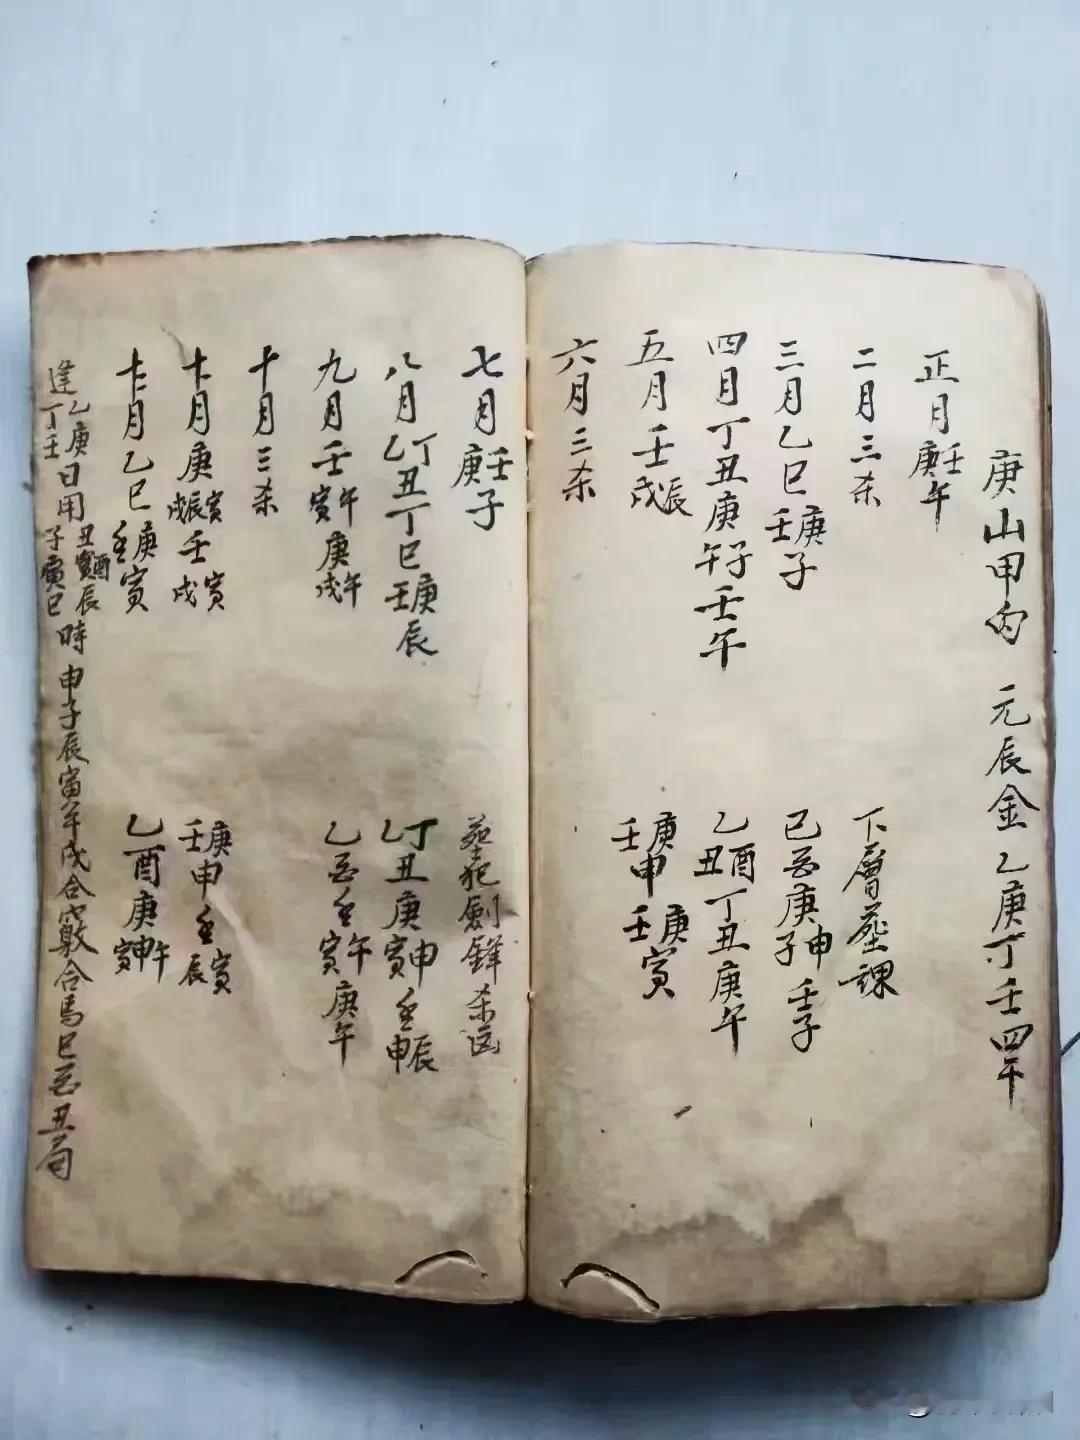 庚山甲向　元辰金乙庚丁壬四午
正月庚壬午
二月三杀　下層葬課
三月乙巳壬庚子　己酉庚子申壬子
四月丁丑庚午子壬午　乙丑酉丁丑庚午
五月壬戌辰　壬庚申壬庚寅
六月三杀
七月庚壬子　葬犯劍鋒杀凶
八月乙丁丑丁巳壬庚辰　乙丁丑庚寅申壬申辰
九月壬寅午庚戌午　乙酉壬寅午庚午
十月三杀
十一月庚戌辰寅壬戌寅　壬庚申壬辰寅
十二月乙巳壬庚寅　乙酉庚寅申午
逢丁壬乙庚日用子寅巳丑酉辰時申子辰寅午戌合竅合馬巳酉丑局